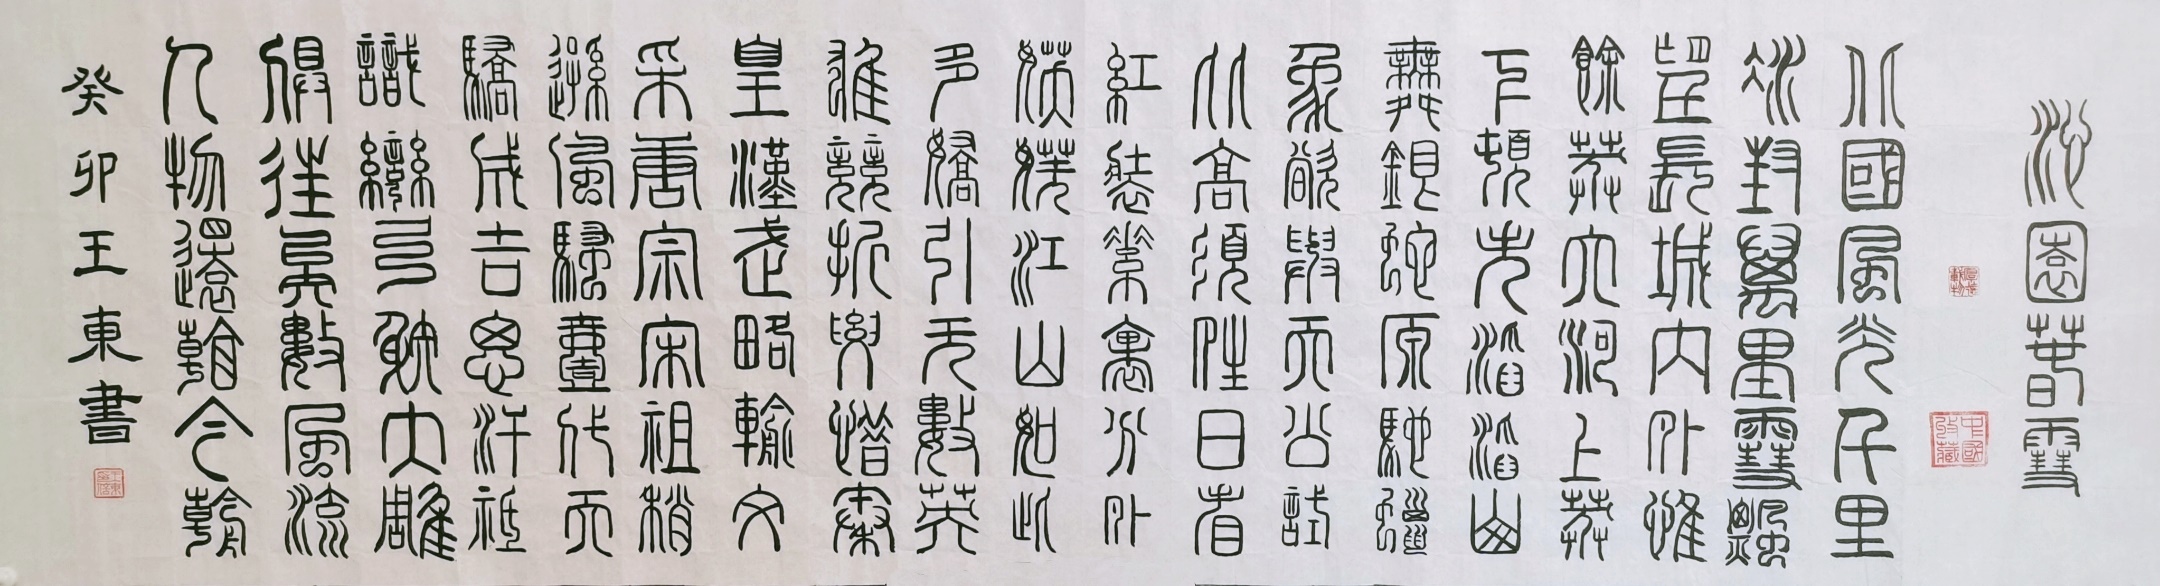 沁園春雪
北國風光千里
冰封萬里雪飄
望長城內外惟
餘莽大河上莽
下頓失滔滔山
舞銀蛇原馳蠟
象欲與天公試
比高須晴日看
紅裝素裹分外
妖嬈江山如此
多嬌引无數英
雄競折腰惜秦
皇漢武略輸文
采唐宗宋祖稍
遜風騷壹代天
驕成吉思汗祇
識彎弓射大雕
俱往矣數風流
人物還看今朝
癸卯王東書
厚德載物
中國收藏